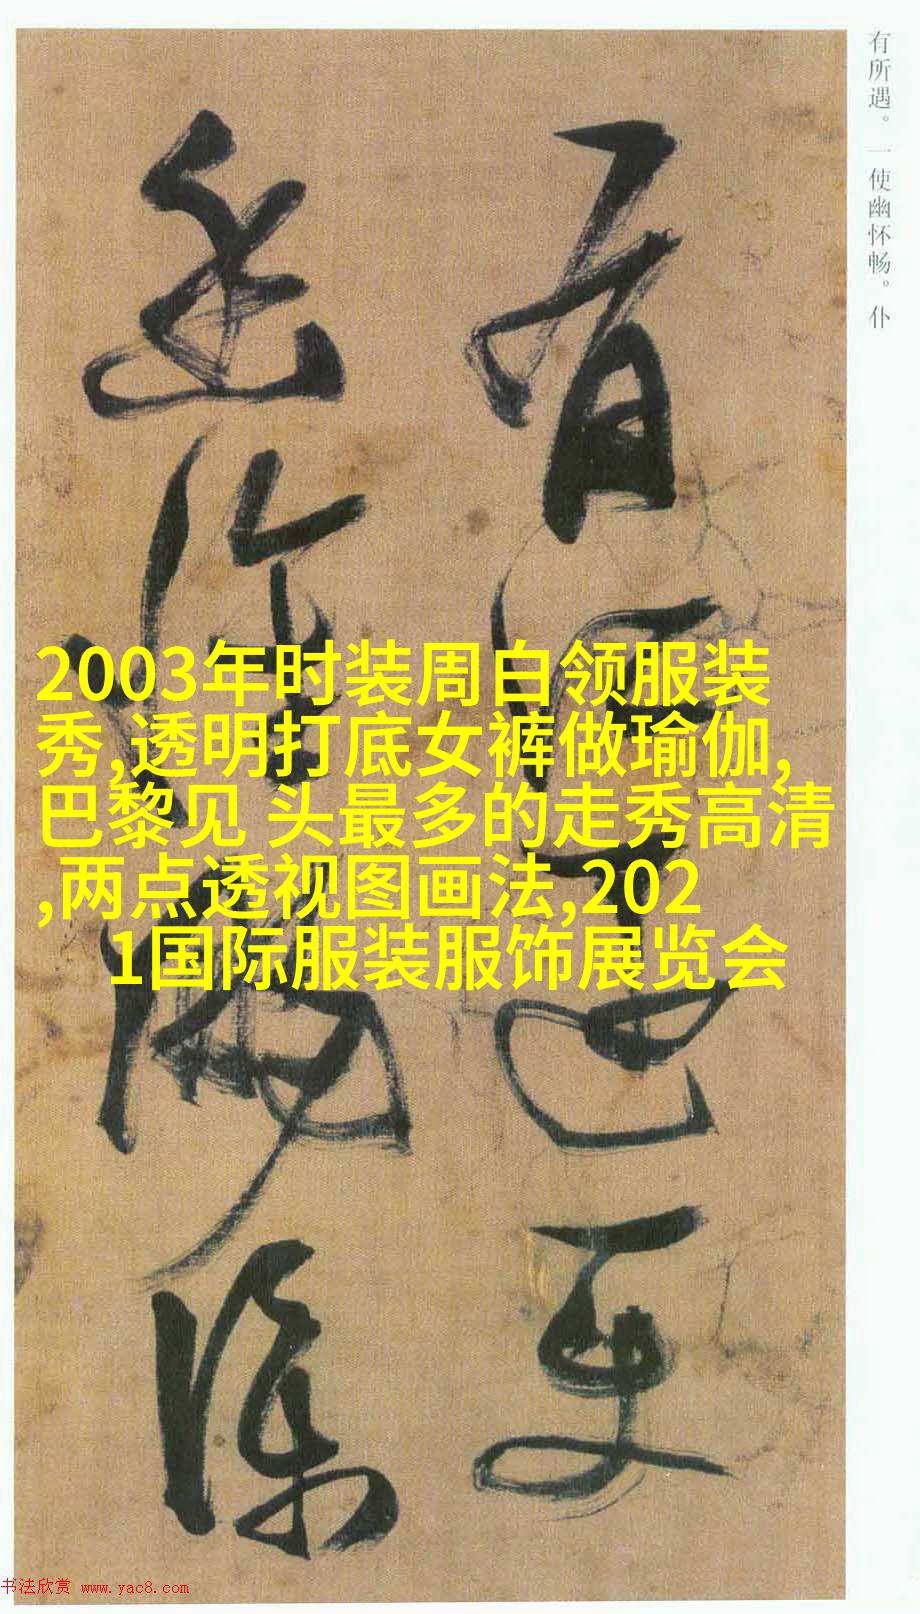 有所遇。一使幽怀畅。仆
有
更
幽怀
深
2003年时装周白领服装
秀,透明打底女裤做瑜伽,
巴黎见 头最多的走秀高清
,两点透视图画法,202
1国际服装服饰展览会
书法欣赏 www.yac8.com